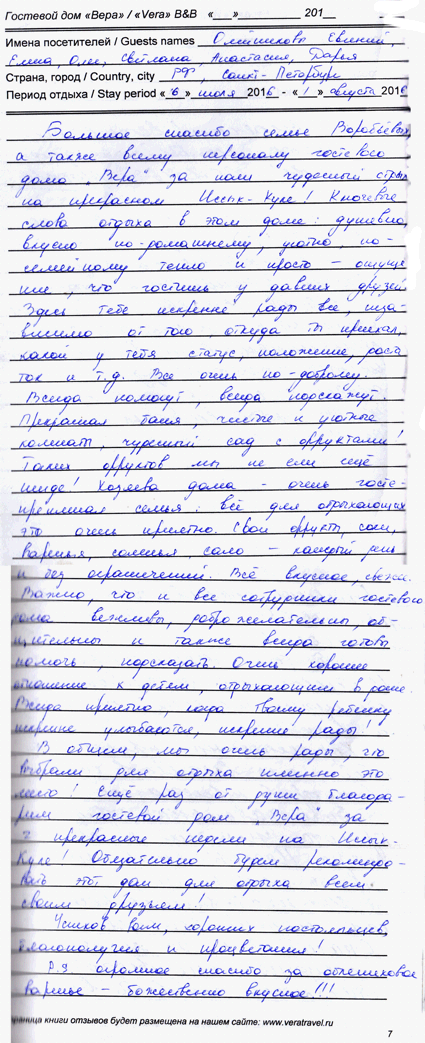 Гостевой дом «Вера» / «Vera» B&B «___»____________ 201__
Имена посетителей / Guests names Олейникова Евгений,
Елена, Олег, Светлана, Анастасия, Дарья
Страна, город / Country, city РФ, Санкт-Петербург
Период отдыха / Stay period « 6 » июля 2016 - « 1 » августа 2016
Большое спасибо семье Воробьёвых,
а также всему персоналу гостевого
дома „Вера“ за наш чудесный отдых
на прекрасном Иссык-Куле! Ключевые
слова отдыха в этом доме: душевно,
вкусно по-домашнему, уютно, по-
семейному тепло и просто – ощуще
ние, что гостишь у давних друзей
Здесь тебе искренне рады все, неза-
висимо от того, откуда ты приехал,
какой у тебя статус, положение, доста
ток и т.д. Все очень по-доброму.
Всегда помогут, всегда подскажут.
Прекрасная баня, чистые и уютные
комнаты, чудесный сад с фруктами!
Таких фруктов мы не ели ещё
нигде! Хозяева дома – очень госте-
приимная семья: всё для отдыхающих
это очень приятно. Свои фрукты, соки,
варенья, соленья, сало – каждый день
и без ограничений. Всё вкусное, свежее.
Важно, что и все сотрудники гостевого
дома вежливы, доброжелательны, об-
щительны и также всегда готовы
помочь, подсказать. Очень хорошее
отношение к детям, отдыхающим в доме.
Всегда приятно, когда твоему ребенку
искренне улыбаются, искренне рады!
В общем, мы очень рады, что
выбрали для отдыха именно это
место! Ещё раз от души благода-
рим гостевой дом „Вера“ за
3 прекрасные недели на Иссык-
Куле! Обязательно будем рекомендо-
вать этот дом для отдыха всем
своим друзьям!
Успехов Вам, хороших постояльцев,
благополучия и процветания!
P.S огромное спасибо за облепиховое
варенье – божественно вкусное!!!
раница книги отзывов будет размещена на нашем сайте: www.veratravel.ru
7